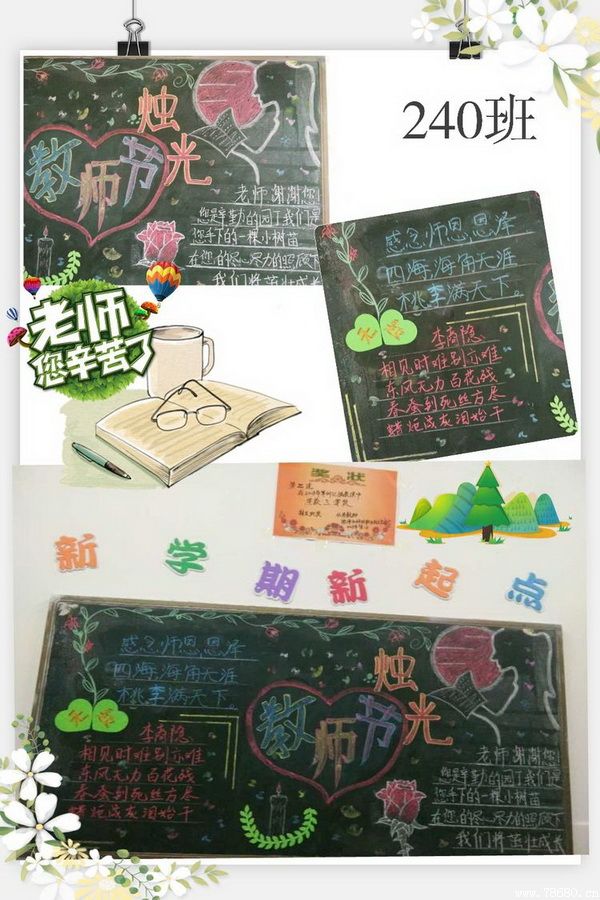 240班
烛光
教师节
老师谢谢您
您是辛勤的园丁我们是
您手下的一棵小树苗
在您的尽心尽力的照顾下
我们将茁壮成长
感念师恩恩泽
四海海角天涯
桃李满天下。
无题
李商隐
相见时难别亦难
东风无力百花残
春蚕到死丝方尽
蜡炬成灰泪始干
老师
您辛苦了
奖状
新学期新起点
感念师恩恩泽
四海海角天涯
桃李满天下。
无题
李商隐
相见时难别亦难
东风无力百花残
春蚕到死丝方尽
蜡炬成灰泪始干
烛光
教师节
老师谢谢您
您是辛勤的园丁我们是
您手下的一棵小树苗
在您的尽心尽力的照顾
我们将茁壮成长
www.78680.cn